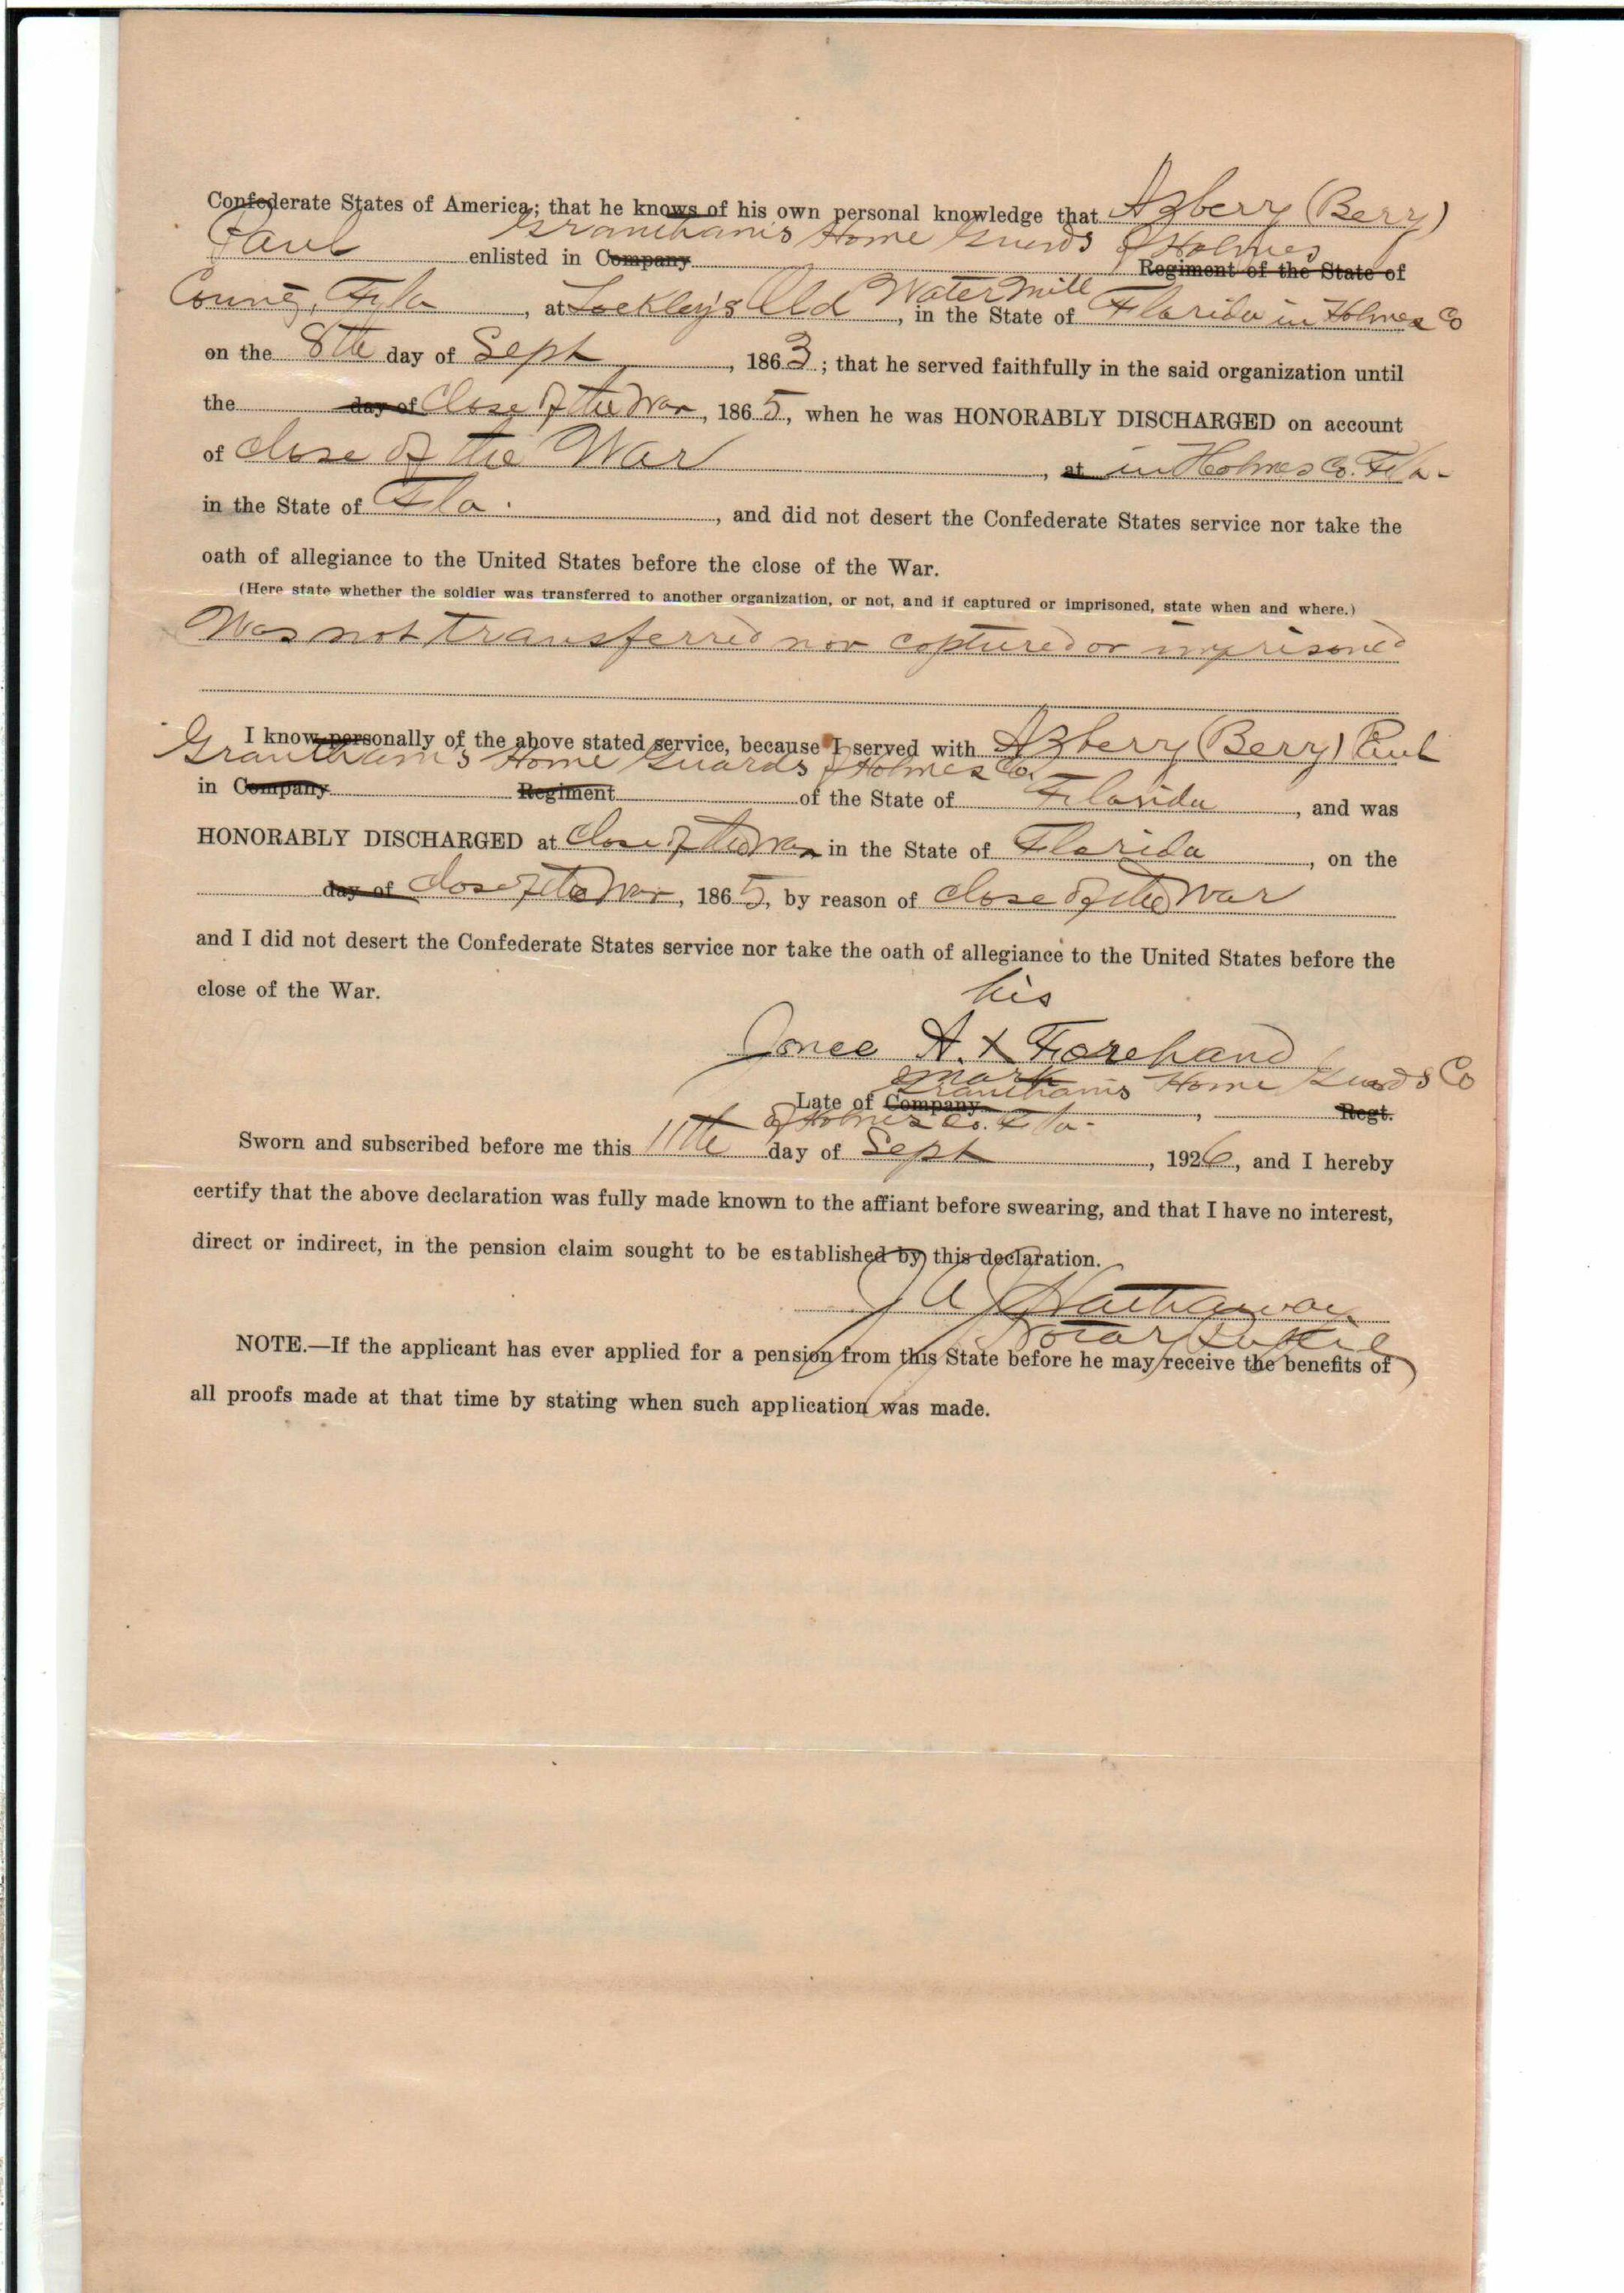 Confederate States of America; that he knows of his own personal knowledge that Azberry (Berry)
Paul enlisted in Company Grantham's Home Guards of Holmes Regiment of the State of
County, Fla, at Lockley's Old Water Mill, in the State of Florida in Holmes Co
on the 8th day of Sept, 1863; that he served faithfully in the said organization until
the day of Close of the War, 1865, when he was HONORABLY DISCHARGED on account
of close of the War, at in Holmes Co. Fla-
in the State of Fla., and did not desert the Confederate States service nor take the
oath of allegiance to the United States before the close of the War.
(Here state whether the soldier was transferred to another organization, or not, and if captured or imprisoned, state when and where.)
Was not transferred nor captured or imprisoned
I know personally of the above stated service, because I served with Azberry (Berry) Paul
Grantham's Home Guards of Holmes Co.
in Company Regiment of the State of Florida, and was
HONORABLY DISCHARGED at Close of the War in the State of Florida, on the
day of close of the War, 1865, by reason of close of the War
and I did not desert the Confederate States service nor take the oath of allegiance to the United States before the
close of the War.
his
A. X Forehand
mark
Grantham's Home Guards Co
Late of Company, Regt.
of Holmes Co. Fla-
Sworn and subscribed before me this 11th day of Sept, 1926, and I hereby
certify that the above declaration was fully made known to the affiant before swearing, and that I have no interest,
direct or indirect, in the pension claim sought to be established by this declaration.
Hathaway
Notary Public
NOTE.—If the applicant has ever applied for a pension from this State before he may receive the benefits of
all proofs made at that time by stating when such application was made.